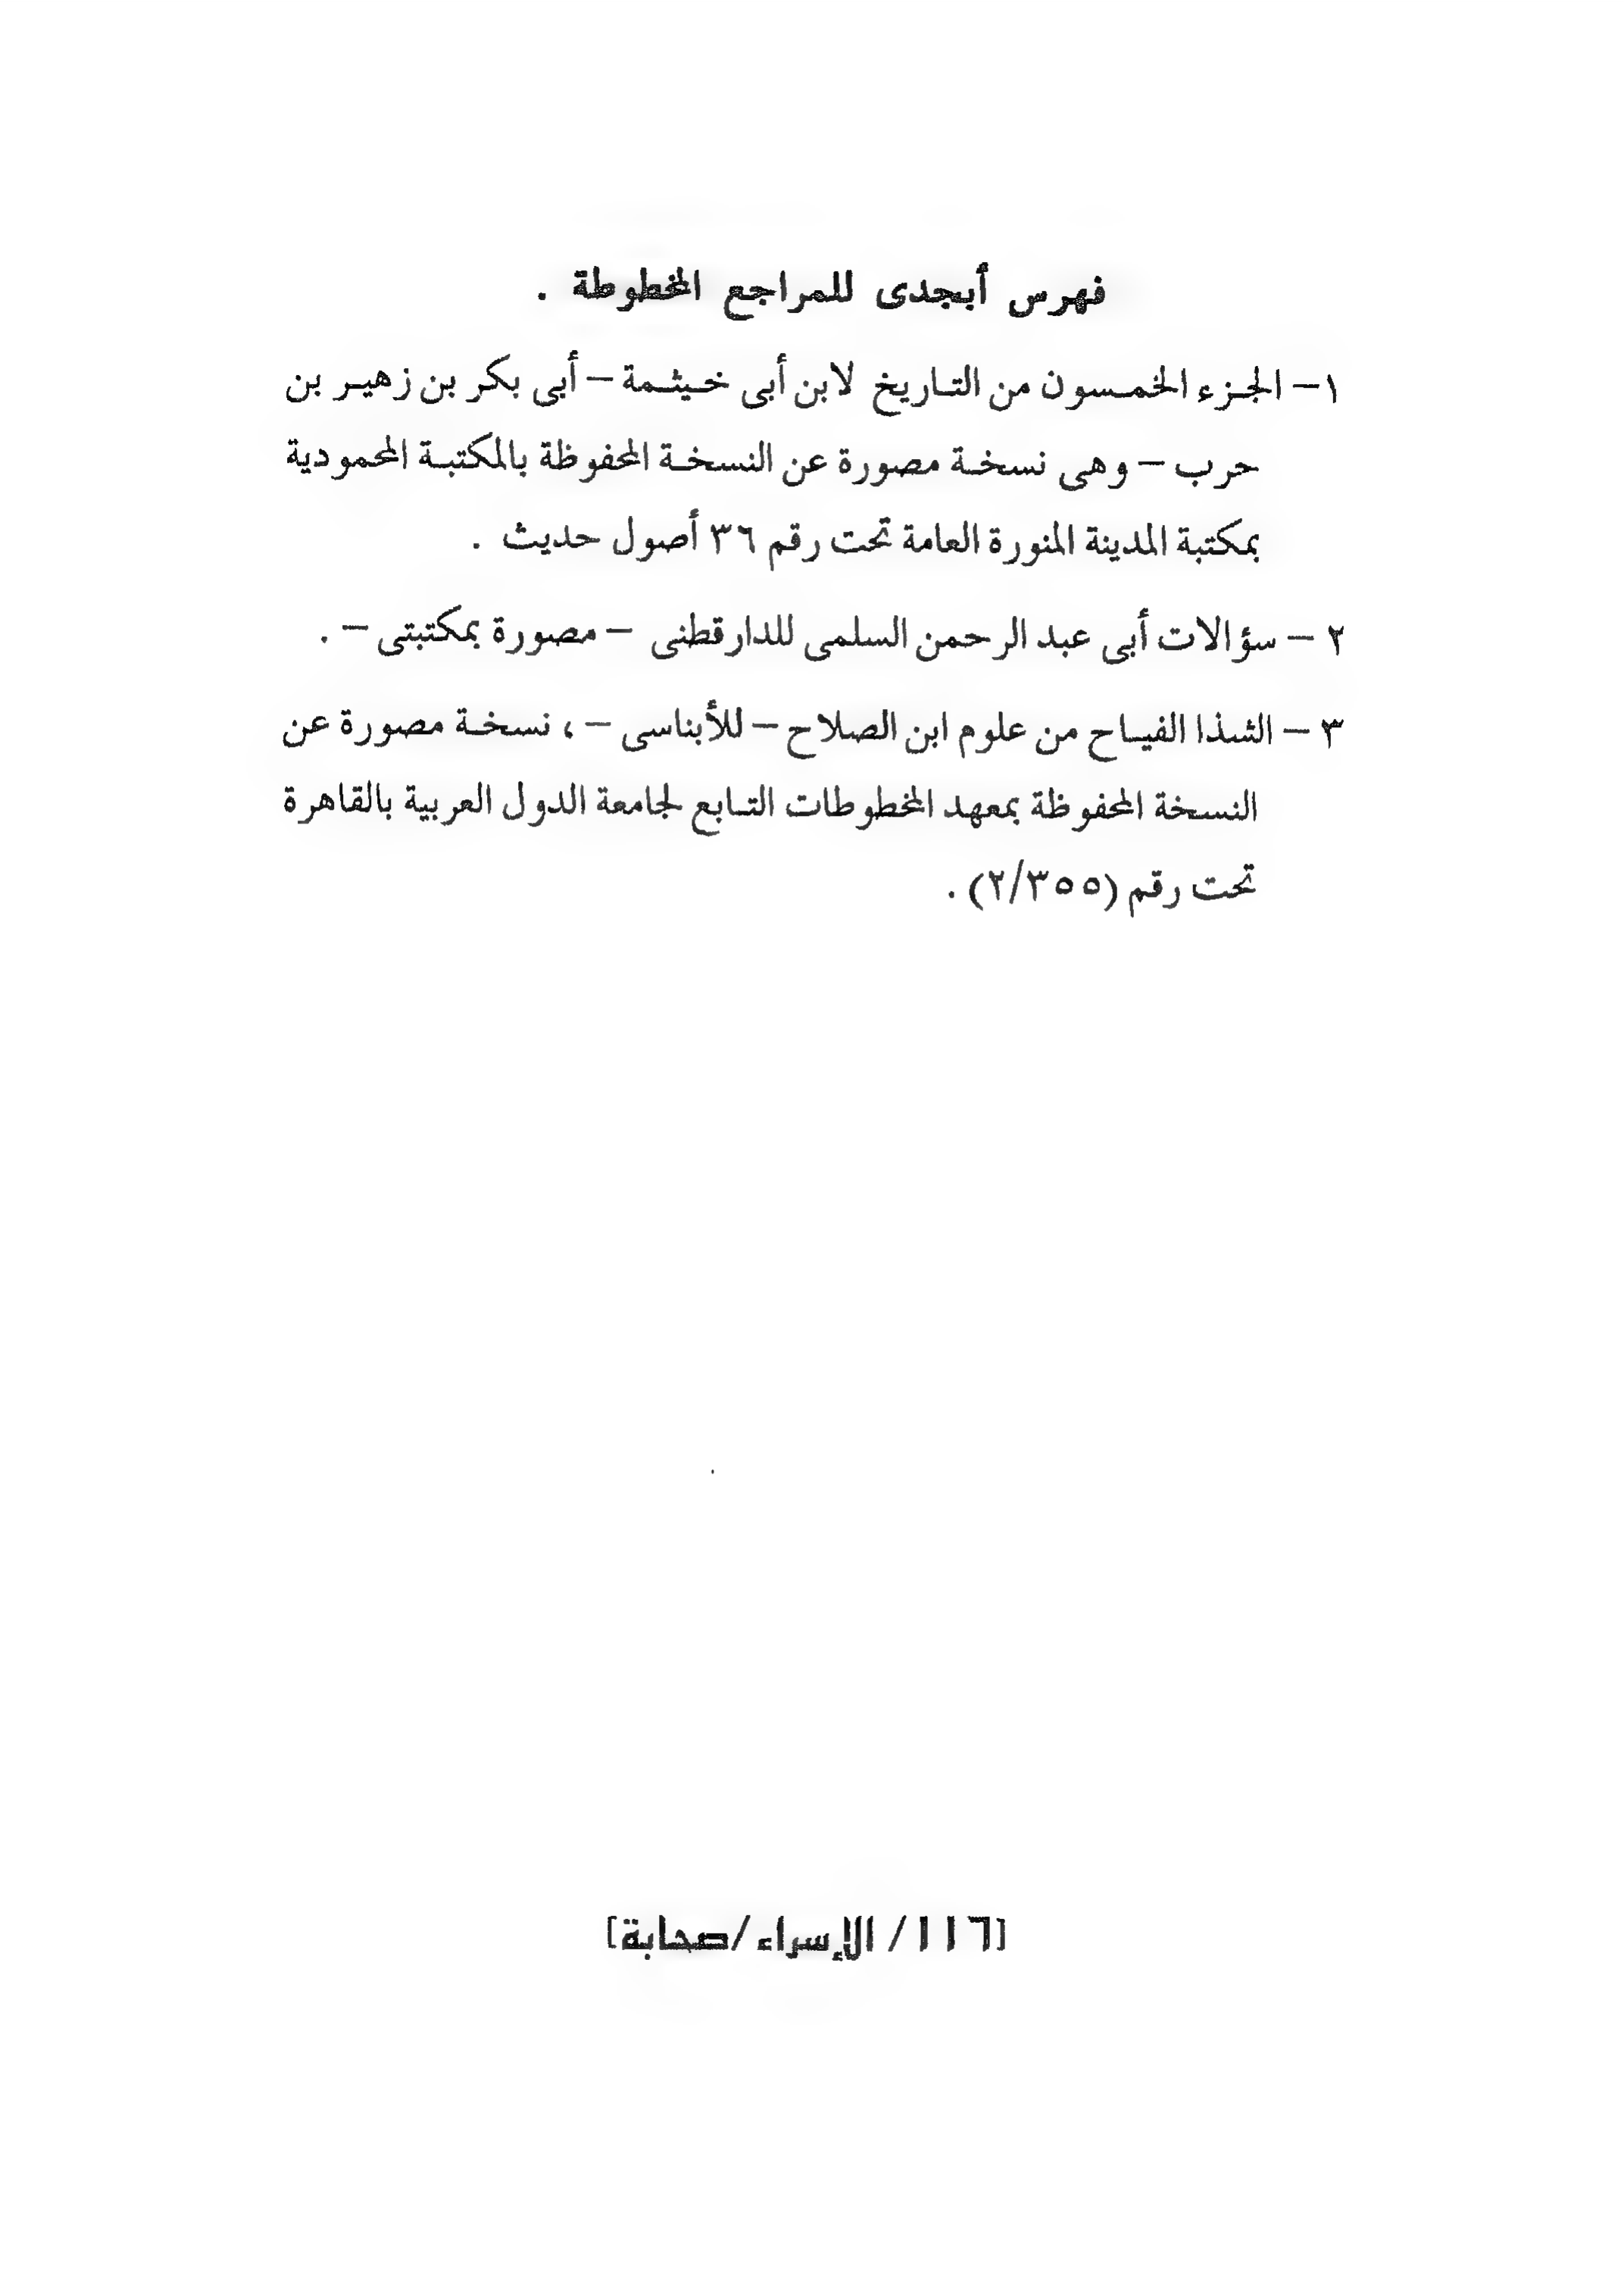 فهرس أبجدى للمراجع المخطوطة .
١– الجزء الخمسون من التاريخ لابن أبى خيثمة – أبى بكر بن زهير بن
حرب – وهى نسخة مصورة عن النسخة المحفوظة بالمكتبة المحمودية
بمكتبة المدينة المنورة العامة تحت رقم ٣٦ أصول حديث .
٢ – سؤالات أبى عبد الرحمن السلمى للدارقطنى – مصورة بمكتبتى – .
٣ – الشذا الفياح من علوم ابن الصلاح – للأبناسى – ، نسخة مصورة عن
النسخة المحفوظة بمعهد المخطوطات التابع لجامعة الدول العربية بالقاهرة
تحت رقم (٢/٣٥٥) .
[١١٦/ الإسراء/صحابة]